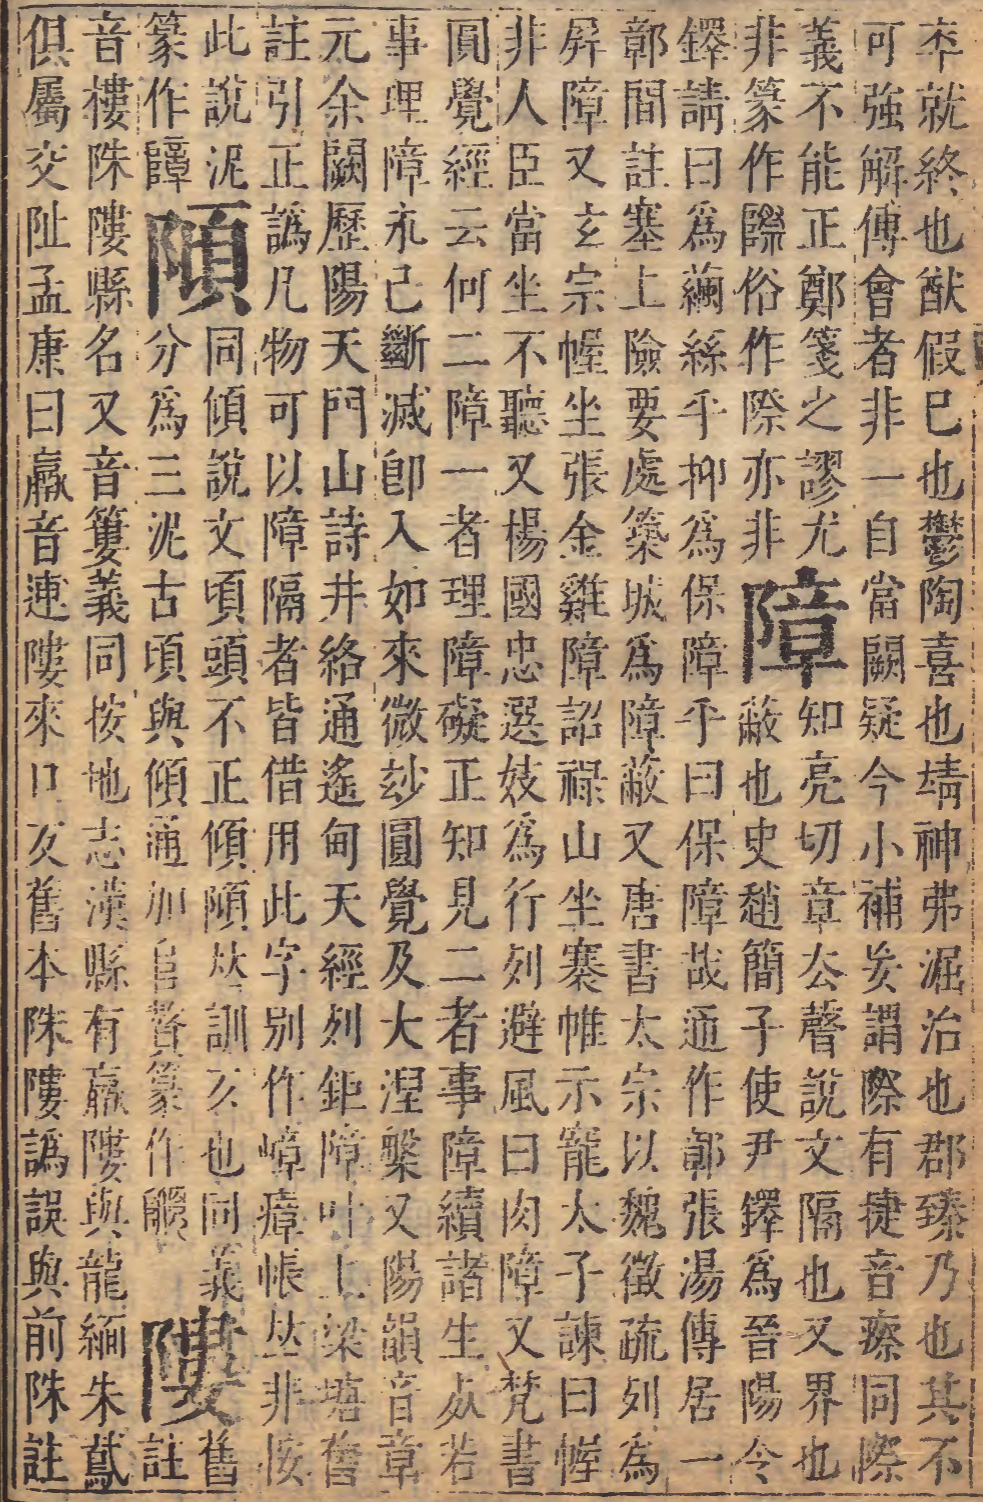 夲就終也猷假巳也鬱陶喜也靖神弗淈治也郡臻乃也其不
可強解傅會者非一自當闕疑今小補妄謂際有捷音瘵同際
義不能正鄭箋之謬尤知亮切章去聲說文隔也又界也
非篆作隙俗作際亦非障蔽也史趙簡子使尹鐸爲晉陽今
鐸請曰爲繭絲乎抑爲保障乎曰保障哉通作鄣張湯傳居一
鄣間註塞上險要處築城爲障蔽又唐書太宗以魏徵疏列爲
屏障又玄宗幄坐張金雞障詔祿山坐褰帷示寵太子諫曰幄
非人臣當坐不聽又楊國忠選妓爲行列避風曰肉障又梵書
圓覺經云何二障一者理障礙正知見二者事障續諸生死若
事理障永已斷滅卽入如來微玅圓覺及大涅槃又陽韻音章
元余闕歷陽天門山詩井絡通遙甸天經列鉅障叶上梁塘舊
註引正譌凡物可以障隔者皆借用此字別作嶂瘴帳𠀤非按
此說泥同傾說文頃頭不正傾𨻺𠀤訓仄也同義舊
篆作障𨻺分爲三泥古頃與傾通加𨸏贅篆作䧟䧁註
音樓陎䧁縣名又音簍義同按地志漢縣有羸䧁與龍緬朱䳒
俱屬交阯孟康曰羸音連䧁來口反舊本陎䧁譌誤與前陎註